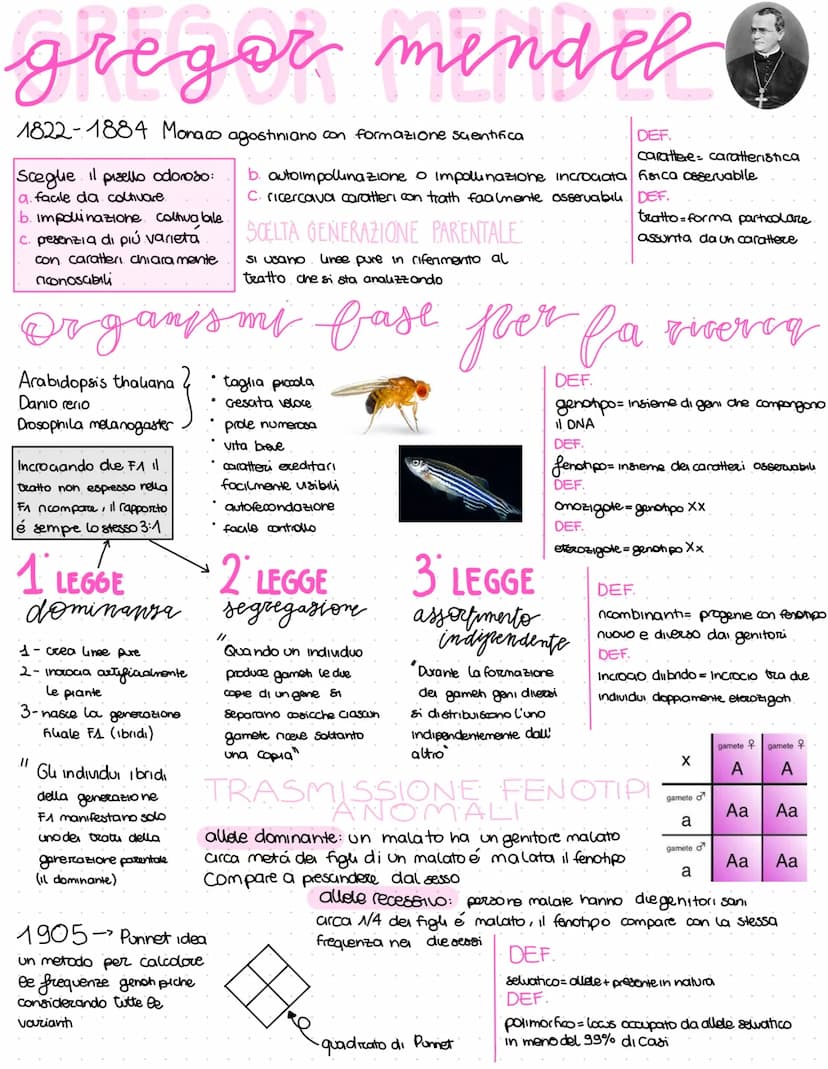 GREGOR MENDEL
gregor mendel
1822-1884 Monaco agostiniano con formazione scientifica
Sceglie il pisello odoroso:
a. facile da coltivare
b. impollinazione coltivabile
c. presenzia di più varietá
con caratteri chiaramente
riconoscibili
b. autoimpollinazione o impollinazione incrociata
c. ricercava caratteri con tratti facilmente osservabili
SCELTA GENERAZIONE PARENTALE
si usano linee pure in riferimento al
tratto che si sta analizzando
DEF.
carattere= caratteristica
fisica osservabile
DEF.
tratto=forma particolare
assunta da un carattere
organismi base per la ricerca
Arabidopsis thaliana
Danio rerio
Drosophila melanogaster
• taglia piccola
• crescita veloce
• prole numerosa
• vita breve
• caratteri ereditari
facilmente visibili
• autofecondazione
• facile controllo
DEF.
genotipo= insieme di geni che compongono
il DNA
DEF.
fenotipo= insieme dei caratteri osservabili
DEF.
omozigote=genotipo XX
DEF.
eterozigote=genotipo Xx
Incrociando due F1 il
tratto non espresso nella
F1 ricompare, il rapporto
é sempre lo stesso 3:1
1° LEGGE
dominanza
1- crea linee pure
2- incrocia artificialmente
le piante
3- nasce la generazione
filiale F1 (ibridi)
"Gli individui ibridi
della generazione
F1 manifestano solo
uno dei tratti della
generazione parentale
(il dominante)
2° LEGGE
segregazione
"Quando un individuo
produce gameti le due
copie di un gene si
separano cosicche ciascun
gamete riceve soltanto
una copia"
3° LEGGE
assortimento
indipendente
"Durante la formazione
dei gameti geni diversi
si distribuiscono l'uno
indipendentemente dall'
altro"
DEF.
ricombinanti= progenie con fenotipo
nuovo e diverso dai genitori
DEF.
incrocio diibrido= incrocio tra due
individui doppiamente eterozigoti
x
gamete ♀
A
gamete ♀
A
gamete ♂
a
Aa
Aa
gamete ♂
a
Aa
Aa
TRASMISSIONE FENOTIPI
ANOMALI
allele dominante: un malato ha un genitore malato
circa metá dei figli di un malato é malata il fenotipo
compare a prescindere dal sesso
allele recessivo: persone malate hanno due genitori sani
circa 1/4 dei figli é malato, il fenotipo compare con la stessa
frequenza nei due sessi
1905→ Punnet idea
un metodo per calcolare
le frequenze genotipiche
considerando tutte le
varianti
quadrato di Punnet
DEF.
selvatico=allele + presente in natura
DEF.
polimorfico=locus occupato da allele selvatico
in meno del 99% di casi